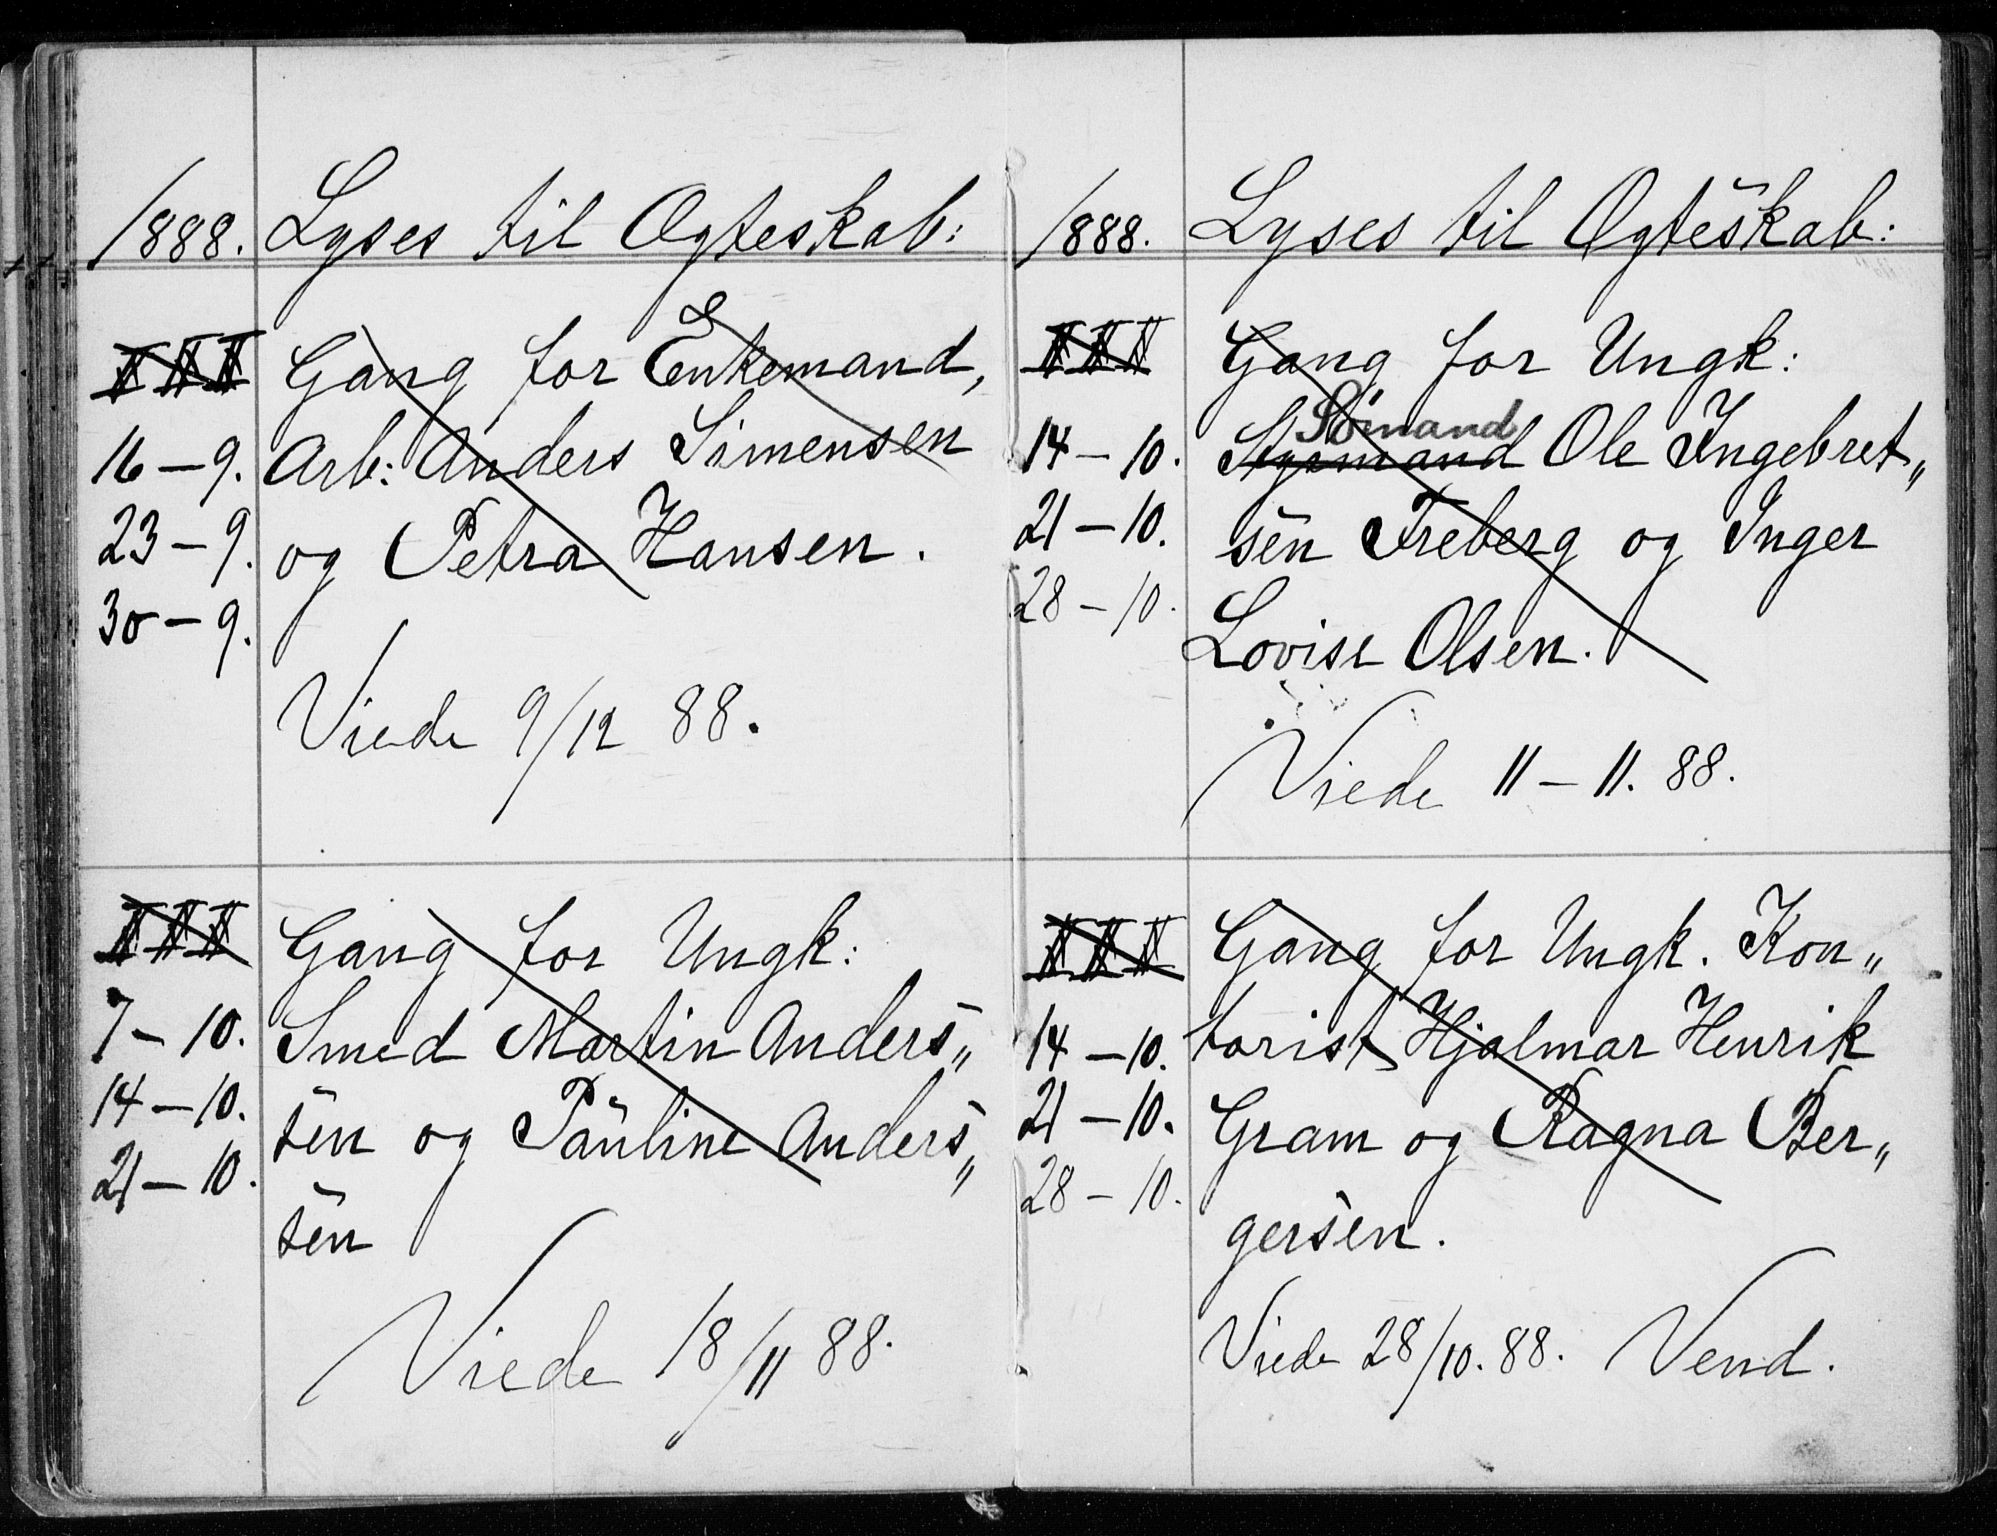 1888. Lyses til Ægteskab:
I II III Gang for Enkemand,
16 – 9. Arb: Anders Simensen
23 – 9. og Petra Hansen.
30 – 9.
Viede 9/12 88.
I II III Gang for Ungk:
7 – 10. Smed Martin Anders„
14 – 10. sen og Pauline Anders„
21 – 10. sen
Viede 18/11 88.
1888. Lyses til Ægteskab:
I II III Gang for Ungk:
Sömand
14 – 10. Styrmand Ole Ingebret„
21 – 10. sen Freberg og Inger
28 – 10. Lovise Olsen.
Viede 11 – 11. 88.
I II III Gang for Ungk. Kon„
14 – 10. torist Hjalmar Henrik
21 – 10. Gram og Ragna Ber„
28 – 10. gersen.
Viede 28/10. 88. Vend.